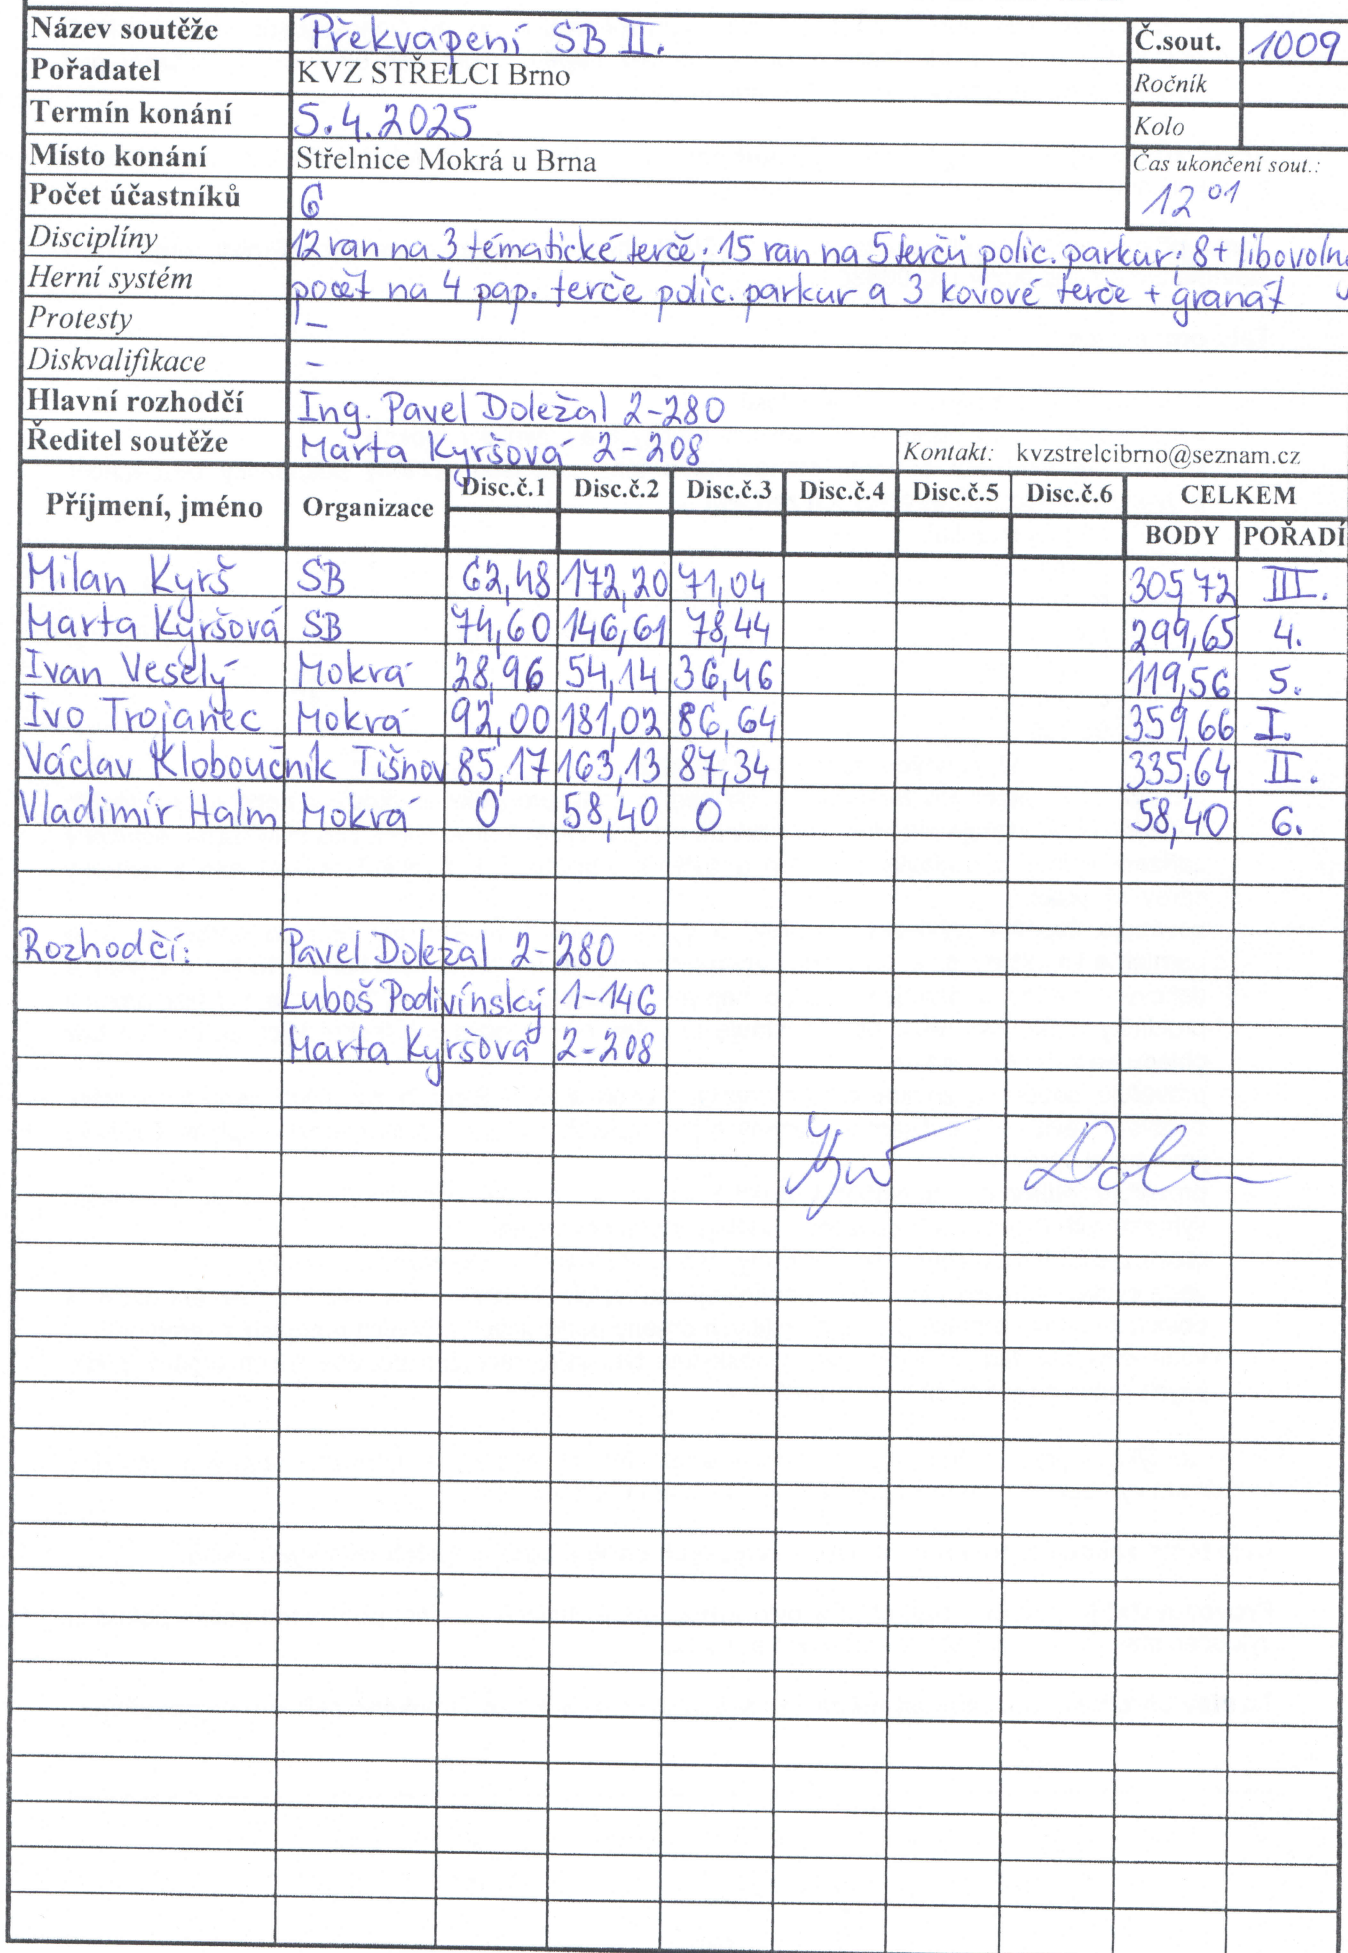 Název soutěže Překvapení SB II. Č.sout. 1009
Pořadatel KVZ STŘELCI Brno Ročník
Termín konání 5.4.2025 Kolo
Místo konání Střelnice Mokrá u Brna Čas ukončení sout.:
Počet účastníků 6 12 01
Disciplíny 12 ran na 3 tématické terče; 15 ran na 5 terčů polic. parkur; 8+ libovolný
Herní systém počet na 4 pap. terče polic. parkur a 3 kovové terče + granát
Protesty –
Diskvalifikace –
Hlavní rozhodčí Ing. Pavel Doležal 2-280
Ředitel soutěže Marta Kyršová 2-208 Kontakt: kvzstrelcibrno@seznam.cz
Příjmení, jméno Organizace Disc.č.1 Disc.č.2 Disc.č.3 Disc.č.4 Disc.č.5 Disc.č.6 CELKEM
BODY POŘADÍ
Milan Kyrš SB 62,48 172,20 71,04 305,72 III.
Marta Kyršová SB 74,60 146,61 78,44 299,65 4.
Ivan Veselý Mokrá 28,96 54,14 36,46 119,56 5.
Ivo Trojanec Mokrá 92,00 181,02 86,64 359,66 I.
Václav Kloboučník Tišnov 85,17 163,13 87,34 335,64 II.
Vladimír Halm Mokrá 0 58,40 0 58,40 6.
Rozhodčí: Pavel Doležal 2-280
Luboš Podivínský 1-146
Marta Kyršová 2-208